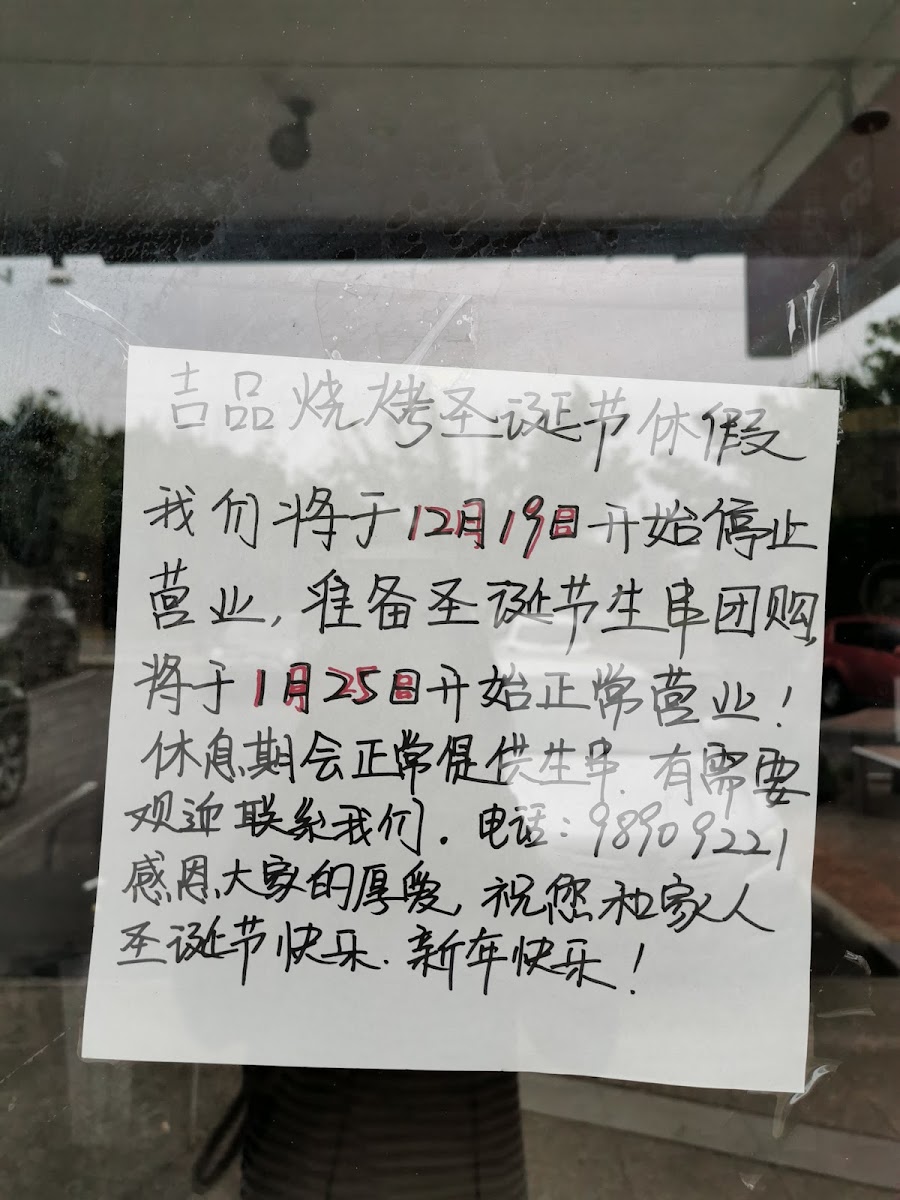 吉品烧烤圣诞节休假
我们将于12月19日开始停止
营业,准备圣诞节生串团购,
将于1月25日开始正常营业!
休息期会正常提供生串.有需要
观迎联系我们.电话:98909221
感恩大家的厚爱,祝您和家人
圣诞节快乐.新年快乐!